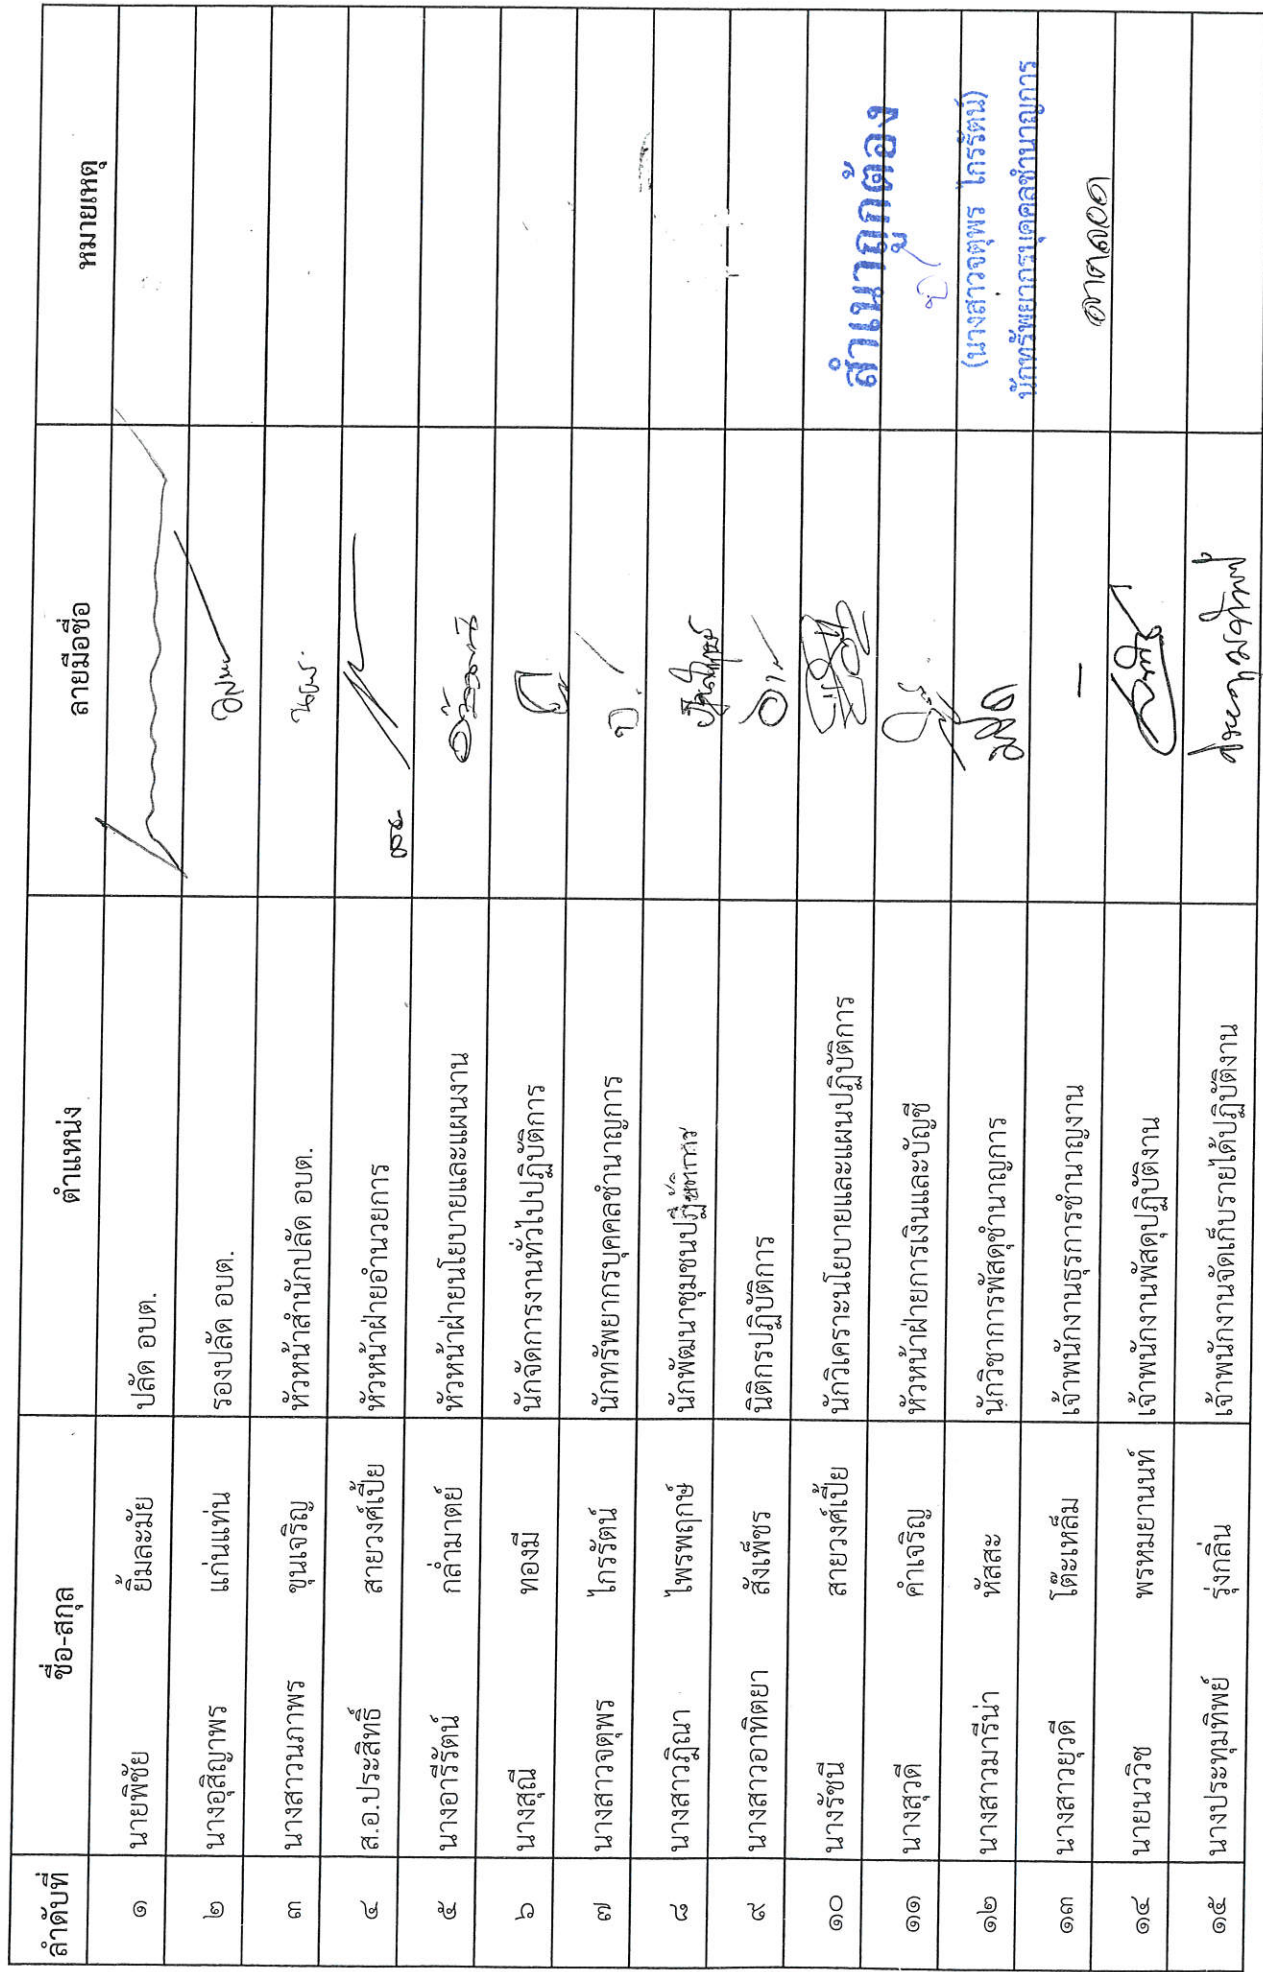 ลำดับที่ ชื่อ-สกุล ตำแหน่ง ลายมือชื่อ หมายเหตุ
๑ นายพิชัย ยิ้มละมัย ปลัด อบต.
๒ นางอุสิญาพร แก่นแท่น รองปลัด อบต.
๓ นางสาวนภาพร ขุนเจริญ หัวหน้าสำนักปลัด อบต. นภพร
๔ ส.อ.ประสิทธิ์ สายวงศ์เปี้ย หัวหน้าฝ่ายอำนวยการ
๕ นางอารีรัตน์ กล่ำมาตย์ หัวหน้าฝ่ายนโยบายและแผนงาน
๖ นางสุณี ทองมี นักจัดการงานทั่วไปปฏิบัติการ
๗ นางสาวจตุพร ไกรรัตน์ นักทรัพยากรบุคคลชำนาญการ
๘ นางสาวฎิณา ไพรพฤกษ์ นักพัฒนาชุมชนปฏิบัติการ
๙ นางสาวอาทิตยา สังเพ็ชร นิติกรปฏิบัติการ
๑๐ นางรัชนี สายวงศ์เปี้ย นักวิเคราะนโยบายและแผนปฏิบัติการ
สำเนาถูกต้อง
๑๑ นางสุวดี คำเจริญ หัวหน้าฝ่ายการเงินและบัญชี
๑๒ นางสาวมารีน่า หัสสะ นักวิชาการพัสดุชำนาญการ
(นางสาวจตุพร ไกรรัตน์)
นักทรัพยากรบุคคลชำนาญการ
๑๓ นางสาวยุวดี โต๊ะเหล็ม เจ้าพนักงานธุรการชำนาญงาน - ลาคลอด
๑๔ นายนววิช พรหมยานนท์ เจ้าพนักงานพัสดุปฏิบัติงาน
๑๕ นางประทุมทิพย์ รุ่งกลิ่น เจ้าพนักงานจัดเก็บรายได้ปฏิบัติงาน